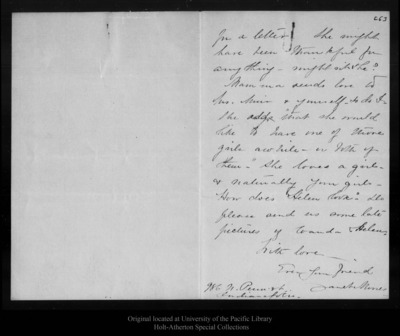 663
for a letter! She might
have been thankful for
anything - might n't she?
Mamma sends love to
Mrs. Muir & yourself - & do &
she says that she would
like to have one of those
girls awhile - or both of
them." She loves a girl -
& naturally your girls -
How does Helen look? Do
please send us some late
pictures of Wanda & Helen.
With love -
Ever your friend
Janet
Original located at University of the Pacific Library
Holt-Atherton Special Collections